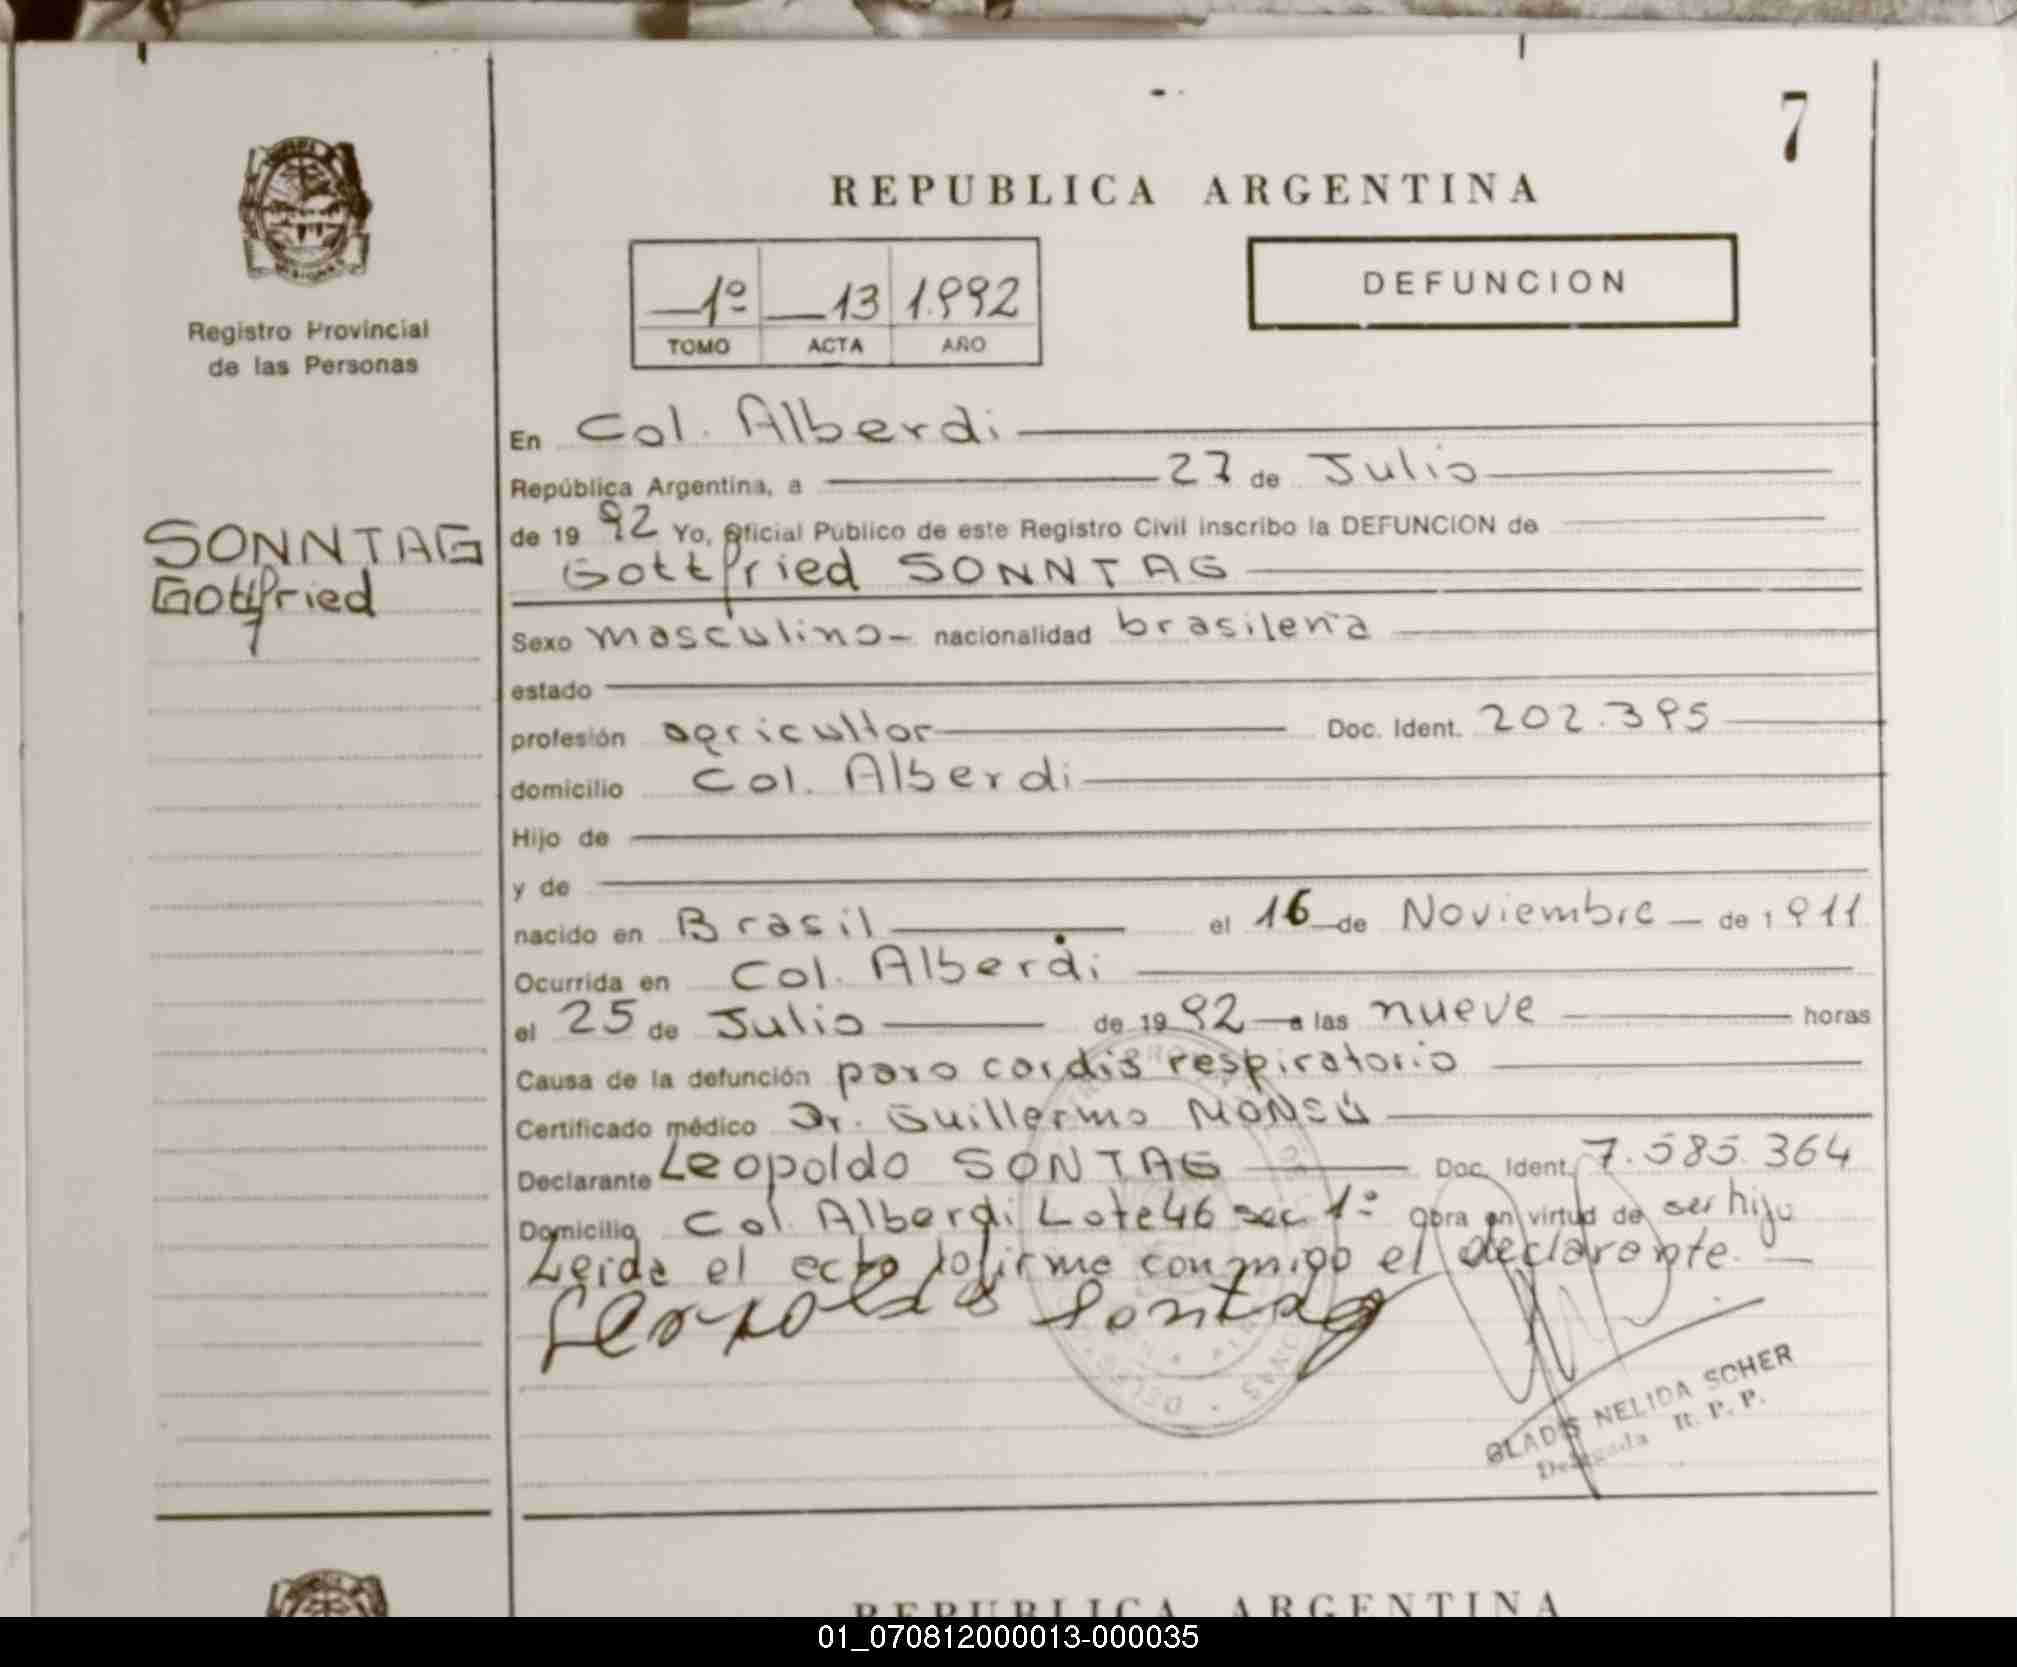 7
REPUBLICA ARGENTINA
DEFUNCION
1º 13 1.992
TOMO ACTA AÑO
Registro Provincial
de las Personas
SONNTAG
Gottfried
En Col. Alberdi
República Argentina, a 27 de Julio
de 19 92 Yo, Oficial Público de este Registro Civil inscribo la DEFUNCION de
Gottfried SONNTAG
Sexo masculino- nacionalidad brasileña
estado
profesión agricultor Doc. Ident. 202.395
domicilio Col. Alberdi
Hijo de
y de
nacido en Brasil el 16 de Noviembre de 1911
Ocurrida en Col. Alberdi
el 25 de Julio de 19 92 a las nueve horas
Causa de la defunción paro cardio respiratorio
Certificado médico Dr. Guillermo MONSÚ
Declarante Leopoldo SONTAG Doc. Ident. 7.585.364
Domicilio Col. Alberdi Lote 46 sec 1º Obra en virtud de ser hijo
Leida el acta lo firma conmigo el declarante.
Leopoldo Sontag
GLADIS NELIDA SCHER
Delegada R. P. P.
REPUBLICA ARGENTINA
01_070812000013-000035